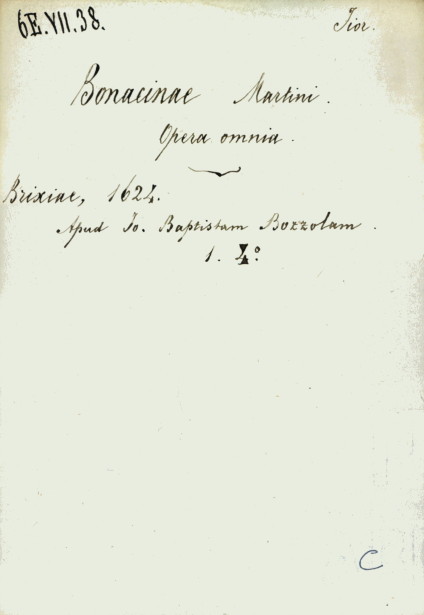 6E.VII.38. Fior.
Bonacinae Martini.
Opera omnia.
Brixiae, 1624.
Apud Io. Baptistam Bozzolam.
1. 4.º
C